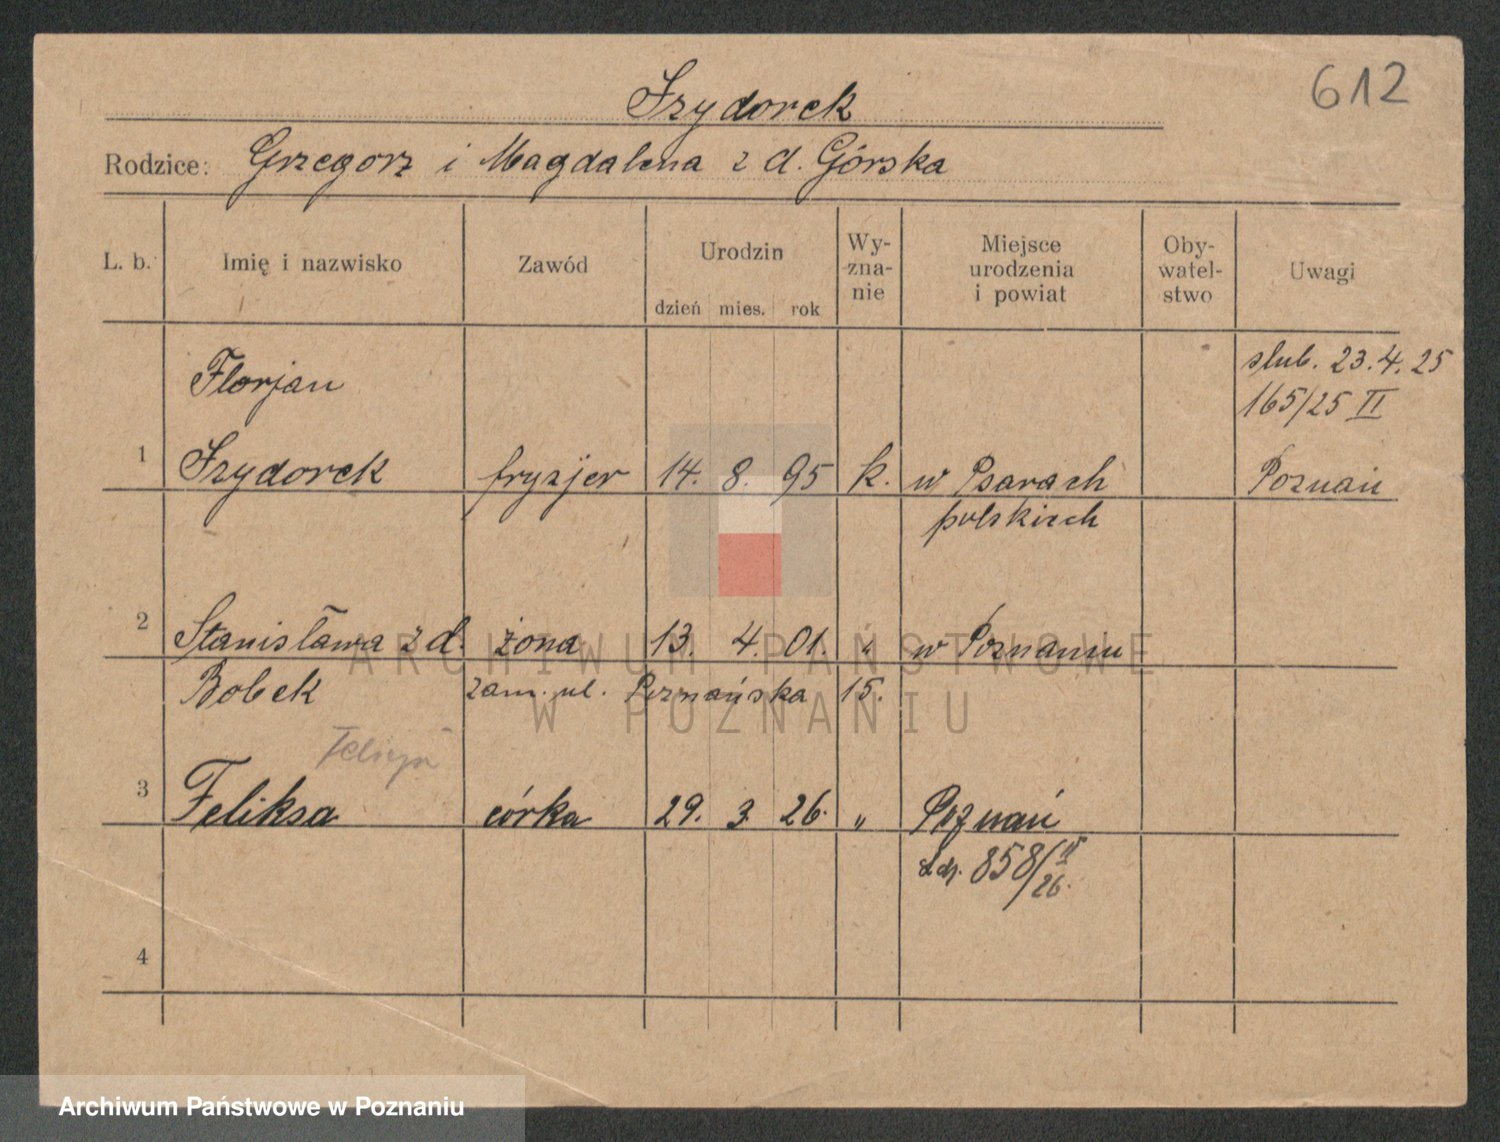 612
Szydorek
Rodzice: Grzegorz i Magdalena z d. Górska
L. b. Imię i nazwisko Zawód Urodzin dzień mies. rok Wy-zna-nie Miejsce urodzenia i powiat Oby-watel-stwo Uwagi
Florjan ślub. 23.4.25
165/25 II
1 Szydorek fryzjer 14. 8. 95 k. w Psarach Poznań
polskiech
2 Stanisława z d. żona 13. 4. 01. " w Poznaniu
Bobek zam. ul. Poznańska 15.
3 Feliksa córka 29. 3. 26. " Poznań
858/IV
26.
4
ARCHIWUM PAŃSTWOWE
W POZNANIU
Archiwum Państwowe w Poznaniu